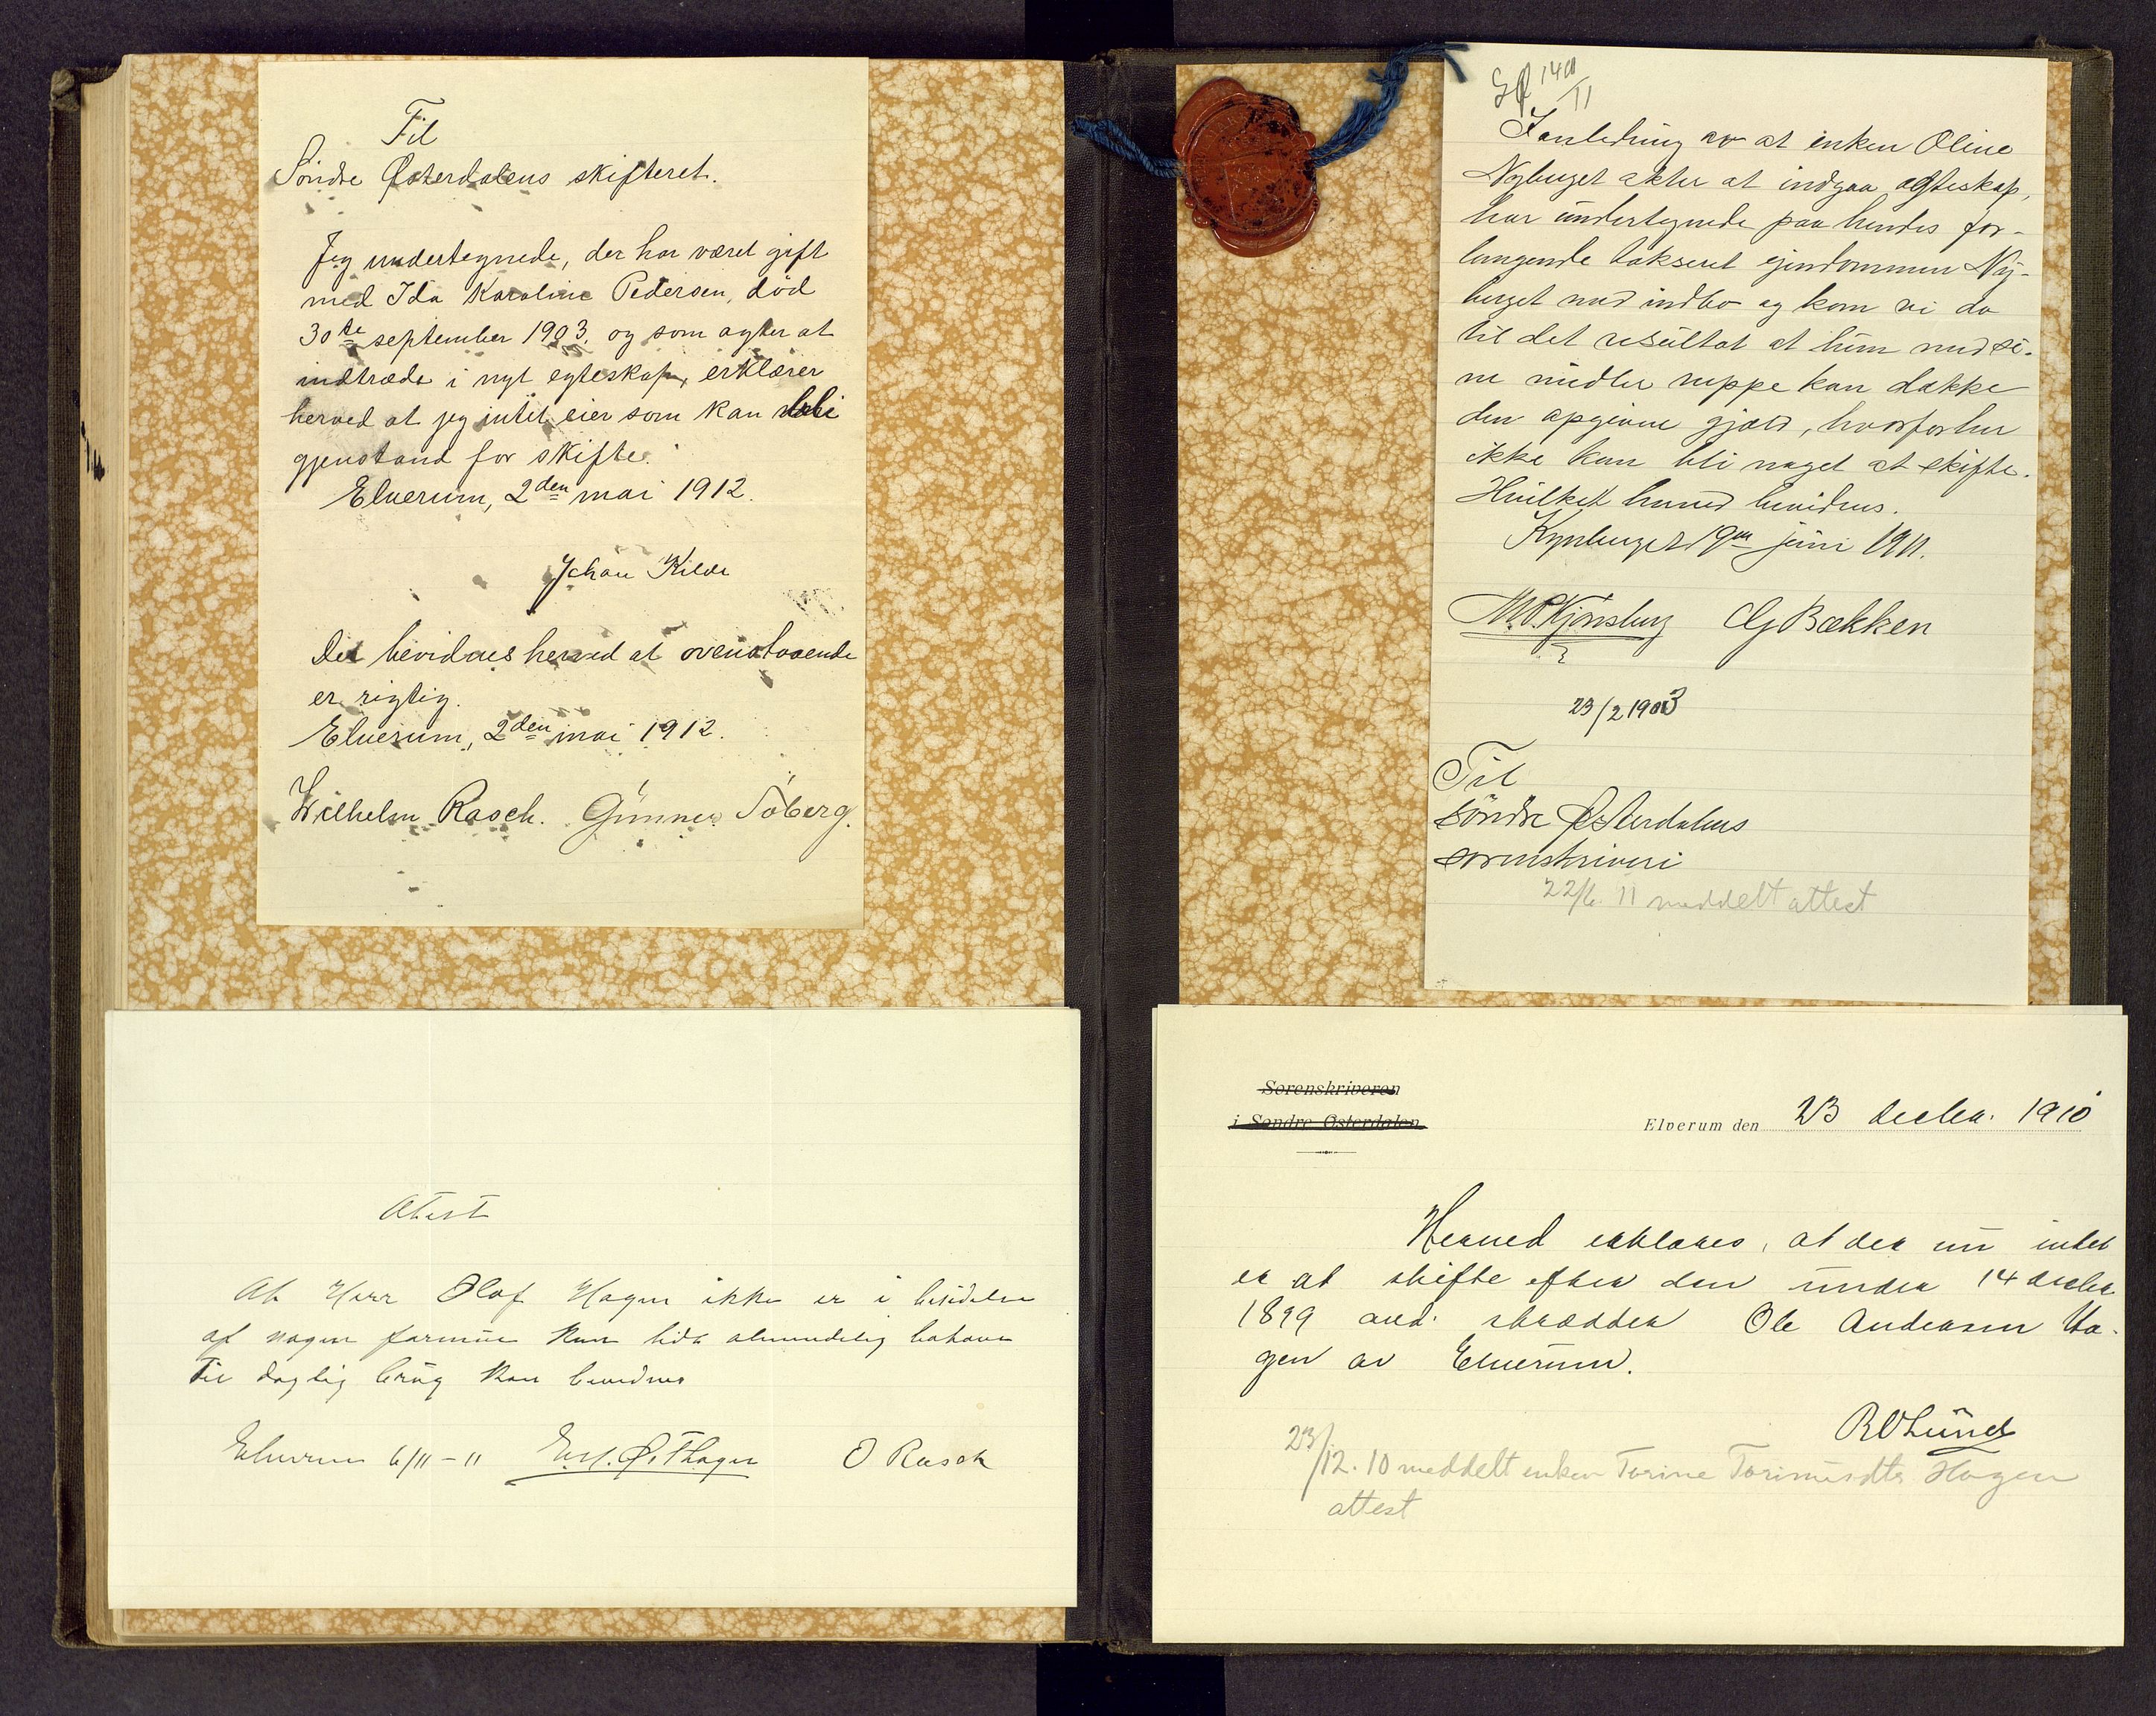 Til
Söndre Østerdalens skifteret.
Jeg undertegnede, der har været gift
med Ida Karoline Pedersen, död
30te september 1903, og som agter at
indtræde i nyt egteskap, erklærer
herved at jeg intet eier som kan bli
gjenstand for skifte.
Elverum, 2den mai 1912.
Johan Kilde
Det bevidnes herved at ovenstaaende
er rigtig.
Elverum, 2den mai 1912.
Wilhelm Rasch. Gunner Söberg.
Atest
At Herr Olof Hagen ikke er i besidelse
af nogen formue kun lidt almindelig
til daglig brug kan bevidnes
Elverum 6/11-11 O Rasch
I anledning av at enken Oline
Nyberget akter at indgaa ægteskap,
har undertegnede paa hendes for-
langende takseret eiendommen Ny-
berget med indbo og kom vi da
til det resultat at hun med si-
ne midler neppe kan dække
den opgivne gjæld, hvorfor her
ikke kan bli noget at skifte.
Hvilket herved bevidnes.
Kynberget 19en juni 1911.
M.P. Kjønsberg OG Bækken
23/2 1903
Til
söndre Østerdalens
sorenskriveri
22/6. 11 meddelt attest
Sorenskriveren
i Søndre Østerdalen
Elverum den 23 decbr. 1910
Herved erklæres, at der nu intet
er at skifte efter den under 14 decbr
1899 avd. skrædder Ole Andersen Ha-
gen av Elverum.
R O Lund
23/12. 10 meddelt enken Torine Hagen
attest